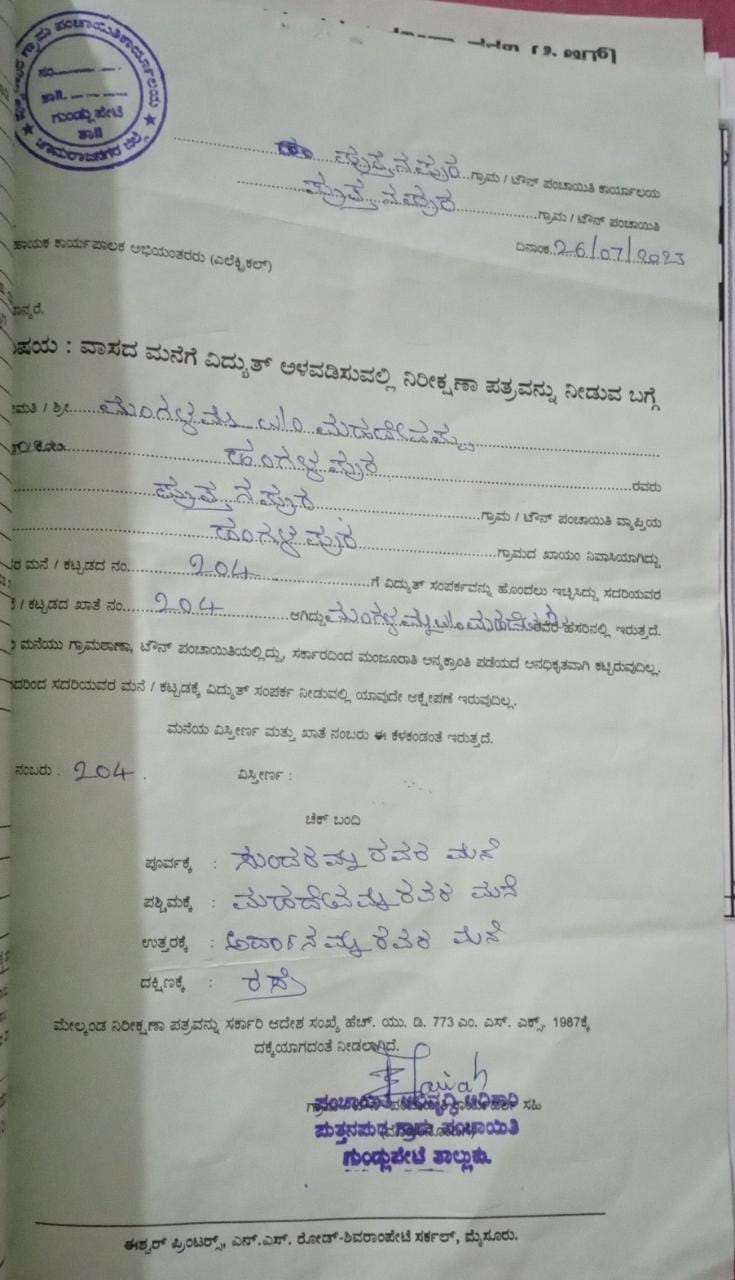 ಗ್ರಾಮ ಪಂಚಾಯಿತಿ ಕಾರ್ಯಾಲಯ
ನಂ.
ತಾ॥.
ಗುಂಡ್ಲುಪೇಟೆ
ತಾ॥
ಚಾಮರಾಜನಗರ ಜಿಲ್ಲೆ
ಗ್ರಾಮ / ಟೌನ್ ಪಂಚಾಯಿತಿ ಕಾರ್ಯಾಲಯ
ಗ್ರಾಮ / ಟೌನ್ ಪಂಚಾಯಿತಿ
ದಿನಾಂಕ 26/07/2023
ಹಾಯಕ ಕಾರ್ಯಪಾಲಕ ಅಭಿಯಂತರರು (ಎಲೆಕ್ಟ್ರಿಕಲ್)
ಾನ್ಯರೆ,
ಷಯ : ವಾಸದ ಮನೆಗೆ ವಿದ್ಯುತ್ ಅಳವಡಿಸುವಲ್ಲಿ ನಿರೀಕ್ಷಣಾ ಪತ್ರವನ್ನು ನೀಡುವ ಬಗ್ಗೆ
ೀಮತಿ / ಶ್ರೀ ಮಂಗಳಮ್ಮ W/o ಮಹದೇವಪ್ಪ
ಹಂಗಳಪುರ ರವರು
ಗ್ರಾಮ / ಟೌನ್ ಪಂಚಾಯಿತಿ ವ್ಯಾಪ್ತಿಯ
ಹಂಗಳಪುರ ಗ್ರಾಮದ ಖಾಯಂ ನಿವಾಸಿಯಾಗಿದ್ದು
ರ ಮನೆ / ಕಟ್ಟಡದ ನಂ. 204 ಗೆ ವಿದ್ಯುತ್ ಸಂಪರ್ಕವನ್ನು ಹೊಂದಲು ಇಚ್ಛಿಸಿದ್ದು ಸದರಿಯವರ
/ ಕಟ್ಟಡದ ಖಾತೆ ನಂ. 204 ಆಗಿದ್ದು ಮಂಗಳಮ್ಮ W/o ರವರ ಹೆಸರಿನಲ್ಲಿ ಇರುತ್ತದೆ.
ಮನೆಯು ಗ್ರಾಮಠಾಣಾ, ಟೌನ್ ಪಂಚಾಯಿತಿಯಲ್ಲಿದ್ದು, ಸರ್ಕಾರದಿಂದ ಮಂಜೂರಾತಿ ಅನ್ಯಕ್ರಾಂತಿ ಪಡೆಯದೆ ಅನಧಿಕೃತವಾಗಿ ಕಟ್ಟಿರುವುದಿಲ್ಲ.
ದರಿಂದ ಸದರಿಯವರ ಮನೆ / ಕಟ್ಟಡಕ್ಕೆ ವಿದ್ಯುತ್ ಸಂಪರ್ಕ ನೀಡುವಲ್ಲಿ ಯಾವುದೇ ಆಕ್ಷೇಪಣೆ ಇರುವುದಿಲ್ಲ.
ಮನೆಯ ವಿಸ್ತೀರ್ಣ ಮತ್ತು ಖಾತೆ ನಂಬರು ಈ ಕೆಳಕಂಡಂತೆ ಇರುತ್ತದೆ.
ನಂಬರು : 204 . ವಿಸ್ತೀರ್ಣ :
ಚೆಕ್ ಬಂದಿ
ಪೂರ್ವಕ್ಕೆ : ಸುಂದರಮ್ಮ ರವರ ಮನೆ
ಪಶ್ಚಿಮಕ್ಕೆ : ಮಹದೇವಮ್ಮ ರವರ ಮನೆ
ಉತ್ತರಕ್ಕೆ : ರವರ ಮನೆ
ದಕ್ಷಿಣಕ್ಕೆ : ರಸ್ತೆ
ಮೇಲ್ಕಂಡ ನಿರೀಕ್ಷಣಾ ಪತ್ರವನ್ನು ಸರ್ಕಾರಿ ಆದೇಶ ಸಂಖ್ಯೆ ಹೆಚ್. ಯು. ಡಿ. 773 ಎಂ. ಎಸ್. ಎಕ್ಸ್, 1987ಕ್ಕೆ
ದಕ್ಕೆಯಾಗದಂತೆ ನೀಡಲಾಗಿದೆ.
ಸಹಿ
ಪಂಚಾಯಿತಿ ಅಭಿವೃದ್ಧಿ ಅಧಿಕಾರಿ
ಗ್ರಾಮ ಪಂಚಾಯಿತಿ
ಗುಂಡ್ಲುಪೇಟೆ ತಾಲ್ಲೂಕು.
ಈಶ್ವರ್ ಪ್ರಿಂಟರ್ಸ್, ಎನ್.ಎಸ್. ರೋಡ್-ಶಿವರಾಂಪೇಟೆ ಸರ್ಕಲ್, ಮೈಸೂರು.